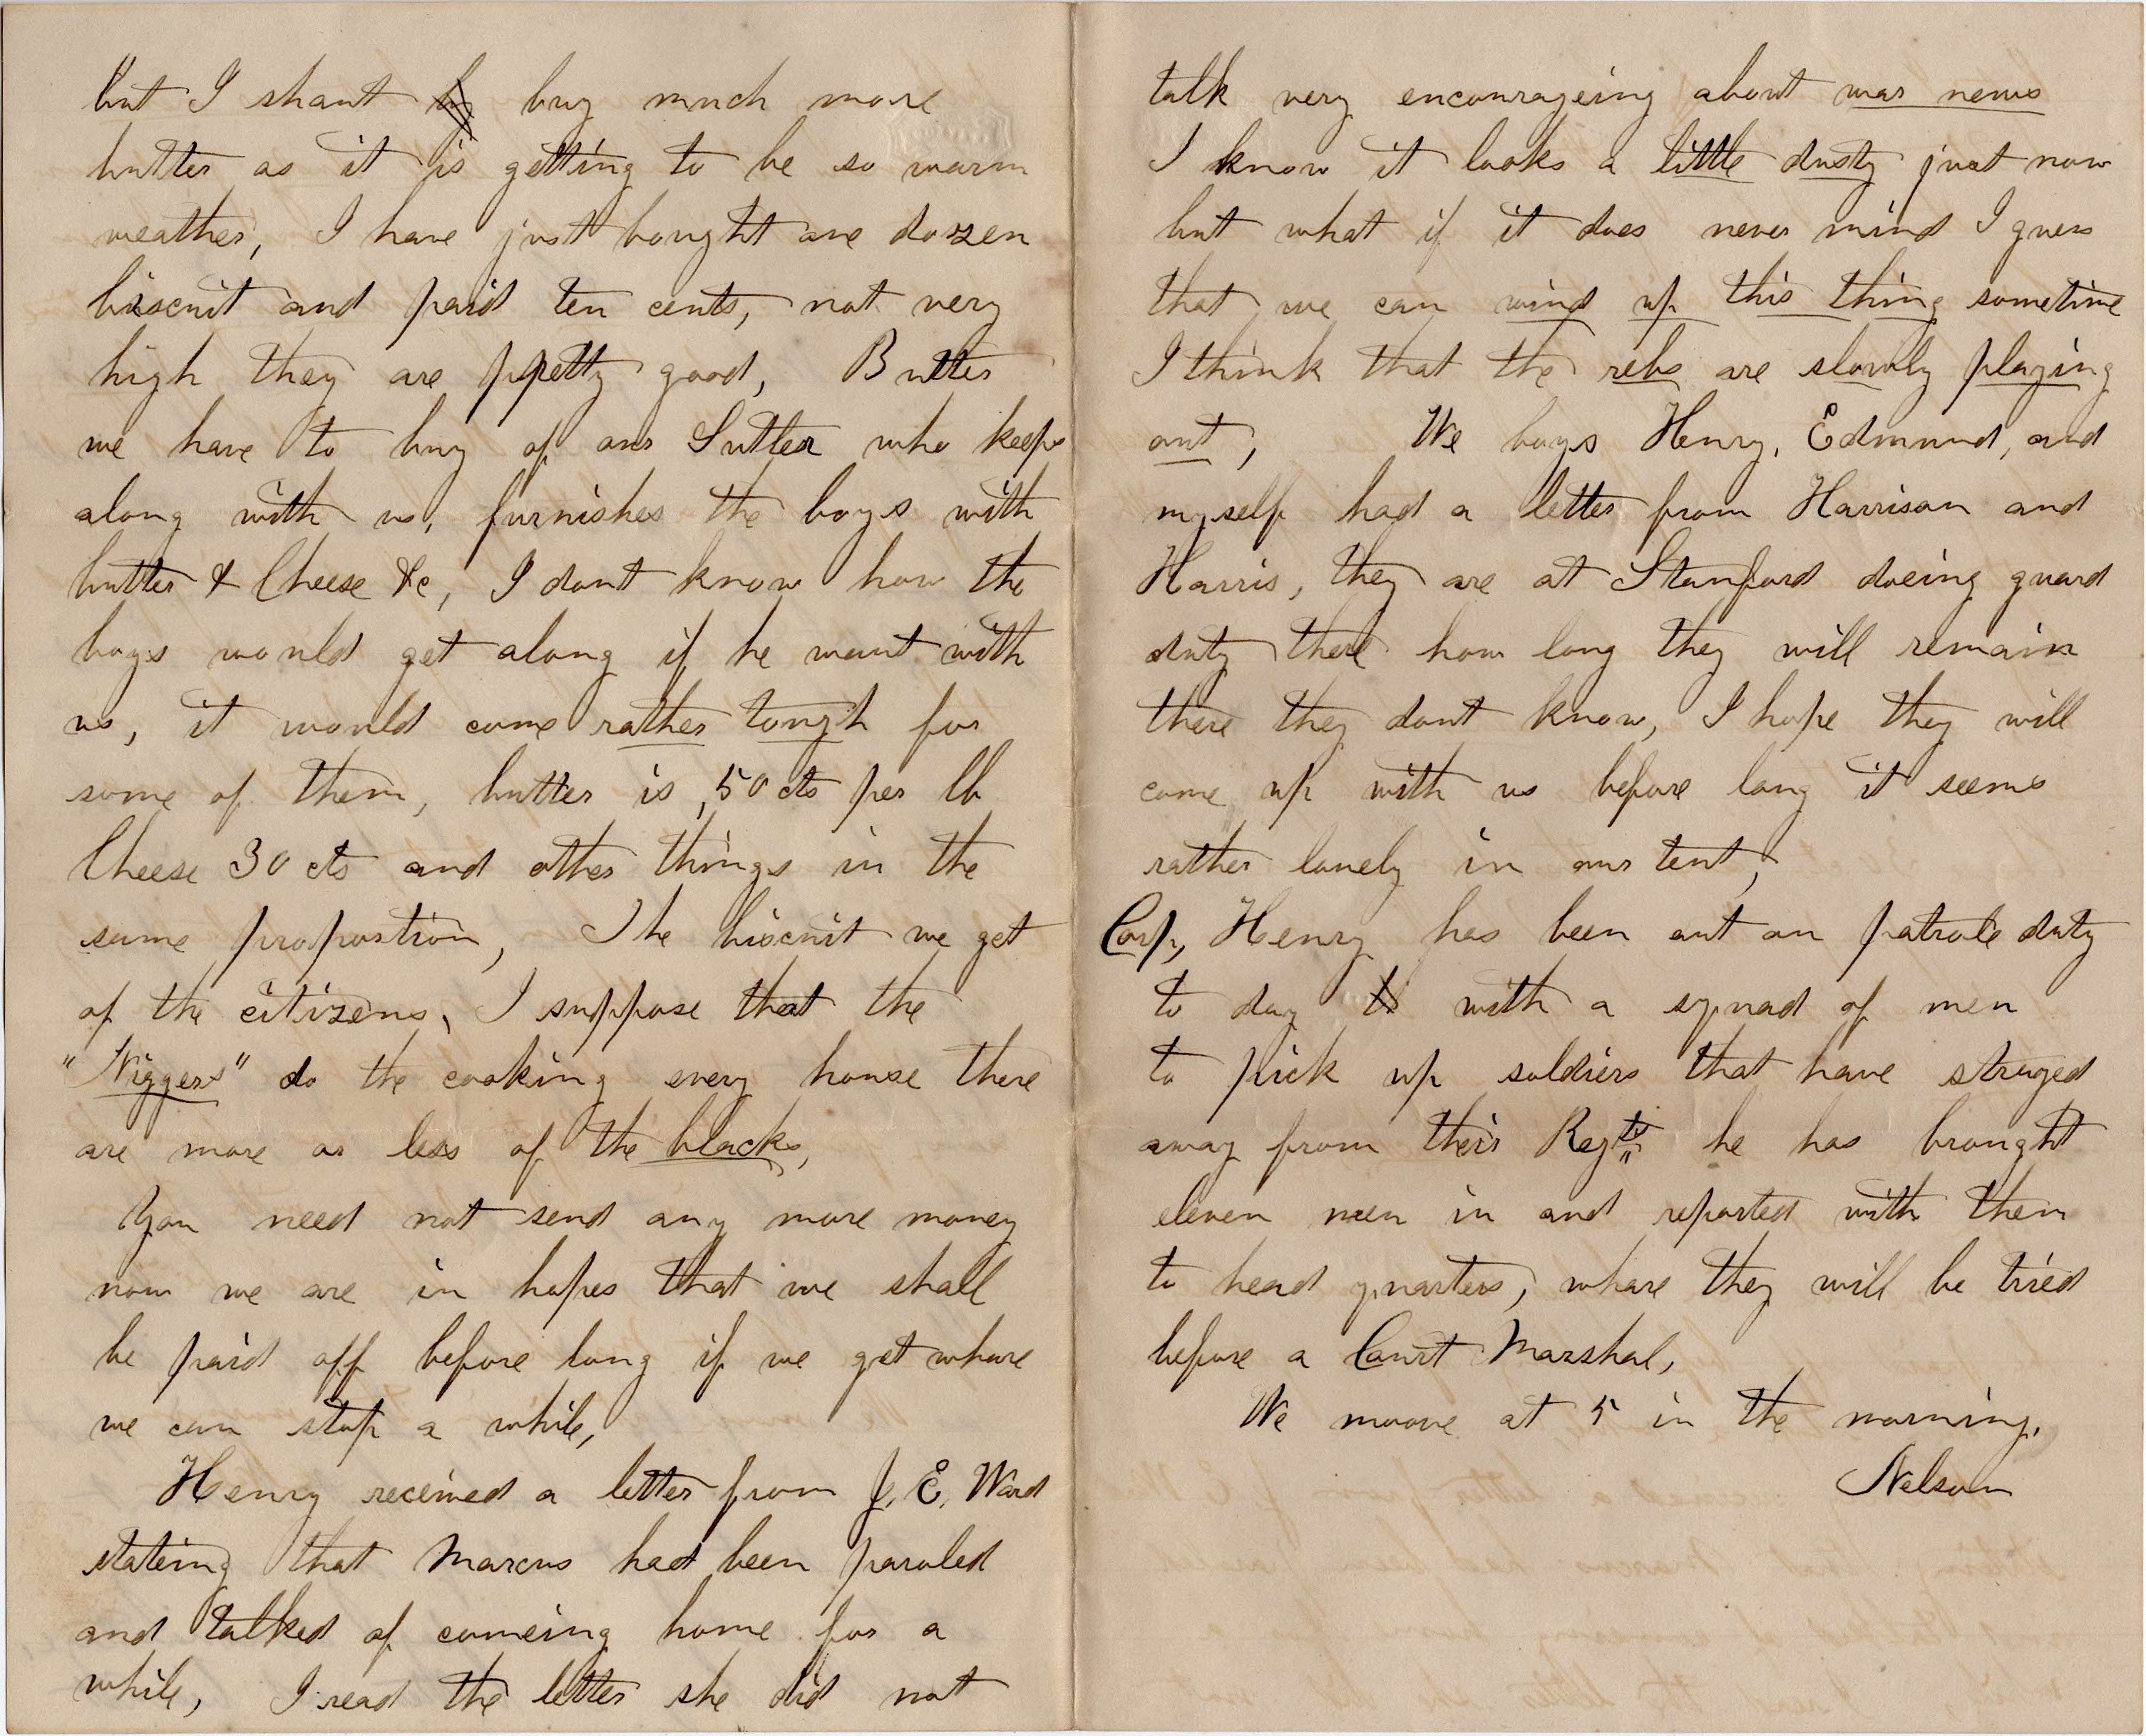 but I shant by buy much more
butter as it is getting to be so warm
weather, I have just bought one dozen
biscuit and paid ten cents, not very
high they are pretty good, Butter
we have to buy of our Sutler who keeps
along with us, furnishes the boys with
butter & Cheese &c, I dont know how the
boys would get along if he want with
us, it would come rather tough for
some of them, butter is, 50 cts per lb
Cheese 30 cts and other things in the
same proportion, The biscuit we get
of the citizens, I suppose that the
"Niggers" do the cooking every house there
are more or less of the blacks,
You need not send any more money
now we are in hopes that we shall
be paid off before long if we get whare
we can stop a while,
Henry received a letter from J. E. Ward
stateing that Marcus had been paroled
and talked of comeing home for a
while, I read the letter she did not
talk very encourageing about war news
I know it looks a little dusty just now
but what if it does never mind I guess
that we can wind up this thing sometime
I think that the rebs are slowly playing
out; We boys Henry, Edmund, and
myself had a letter from Harrison and
Harris, they are at Stanford doeing guard
duty there how long they will remain
there they dont know, I hope they will
come up with us before long it seems
rather lonely in our tent,
Corp, Henry has been out on patrole duty
to day with a squad of men
to pick up soldiers that have straged
away from their Regts he has brought
eleven men in and reported with them
to head quarters, whare they will be tried
before a Court Marshal,
We moove at 5 in the morning.
Nelson